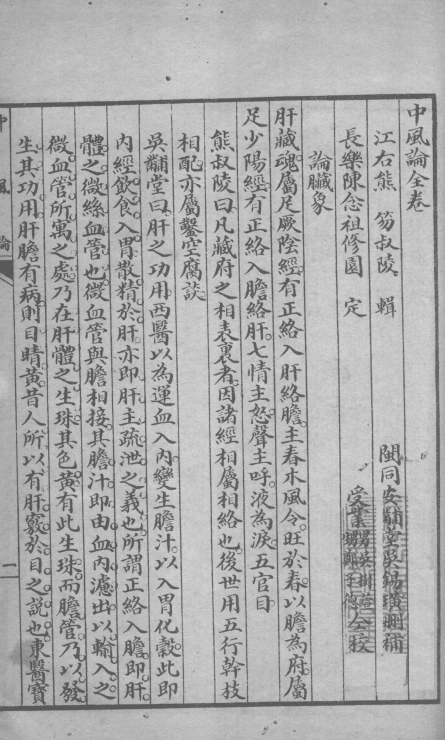 中風論全卷
江右熊　笏叔陵　輯
閩同安黼堂吳錫璜刪補
長樂陳念祖修園　定
受業
仝校
論臟象
肝藏魂。屬足厥陰經。有正絡入肝絡膽。主春木風令。旺於春。以膽為府。屬
足少陽經。有正絡入膽絡肝。七情主怒。聲主呼。液為淚。五官目
熊叔陵曰。凡藏府之相表裏者。因諸經相屬相絡也。後世用五行幹技
相配。亦屬鑿空腐談
吳黼堂曰。肝之功用。西醫以為運血入內。變生膽汁。以入胃化穀。此即
內經飲食入胃。散精於肝。亦即肝主疏泄之義也。所謂正絡入膽。即肝
體之微絲血管也。微血管與膽相接。其膽汁即由血內濾出。以輸入之
微血管。所寓之處。乃在肝體之生珠。其色黃。有此生珠。而膽管乃以發
生其功用。肝膽有病。則目睛黃。昔人所以有肝竅於目之說也。東醫寶
中風論
一